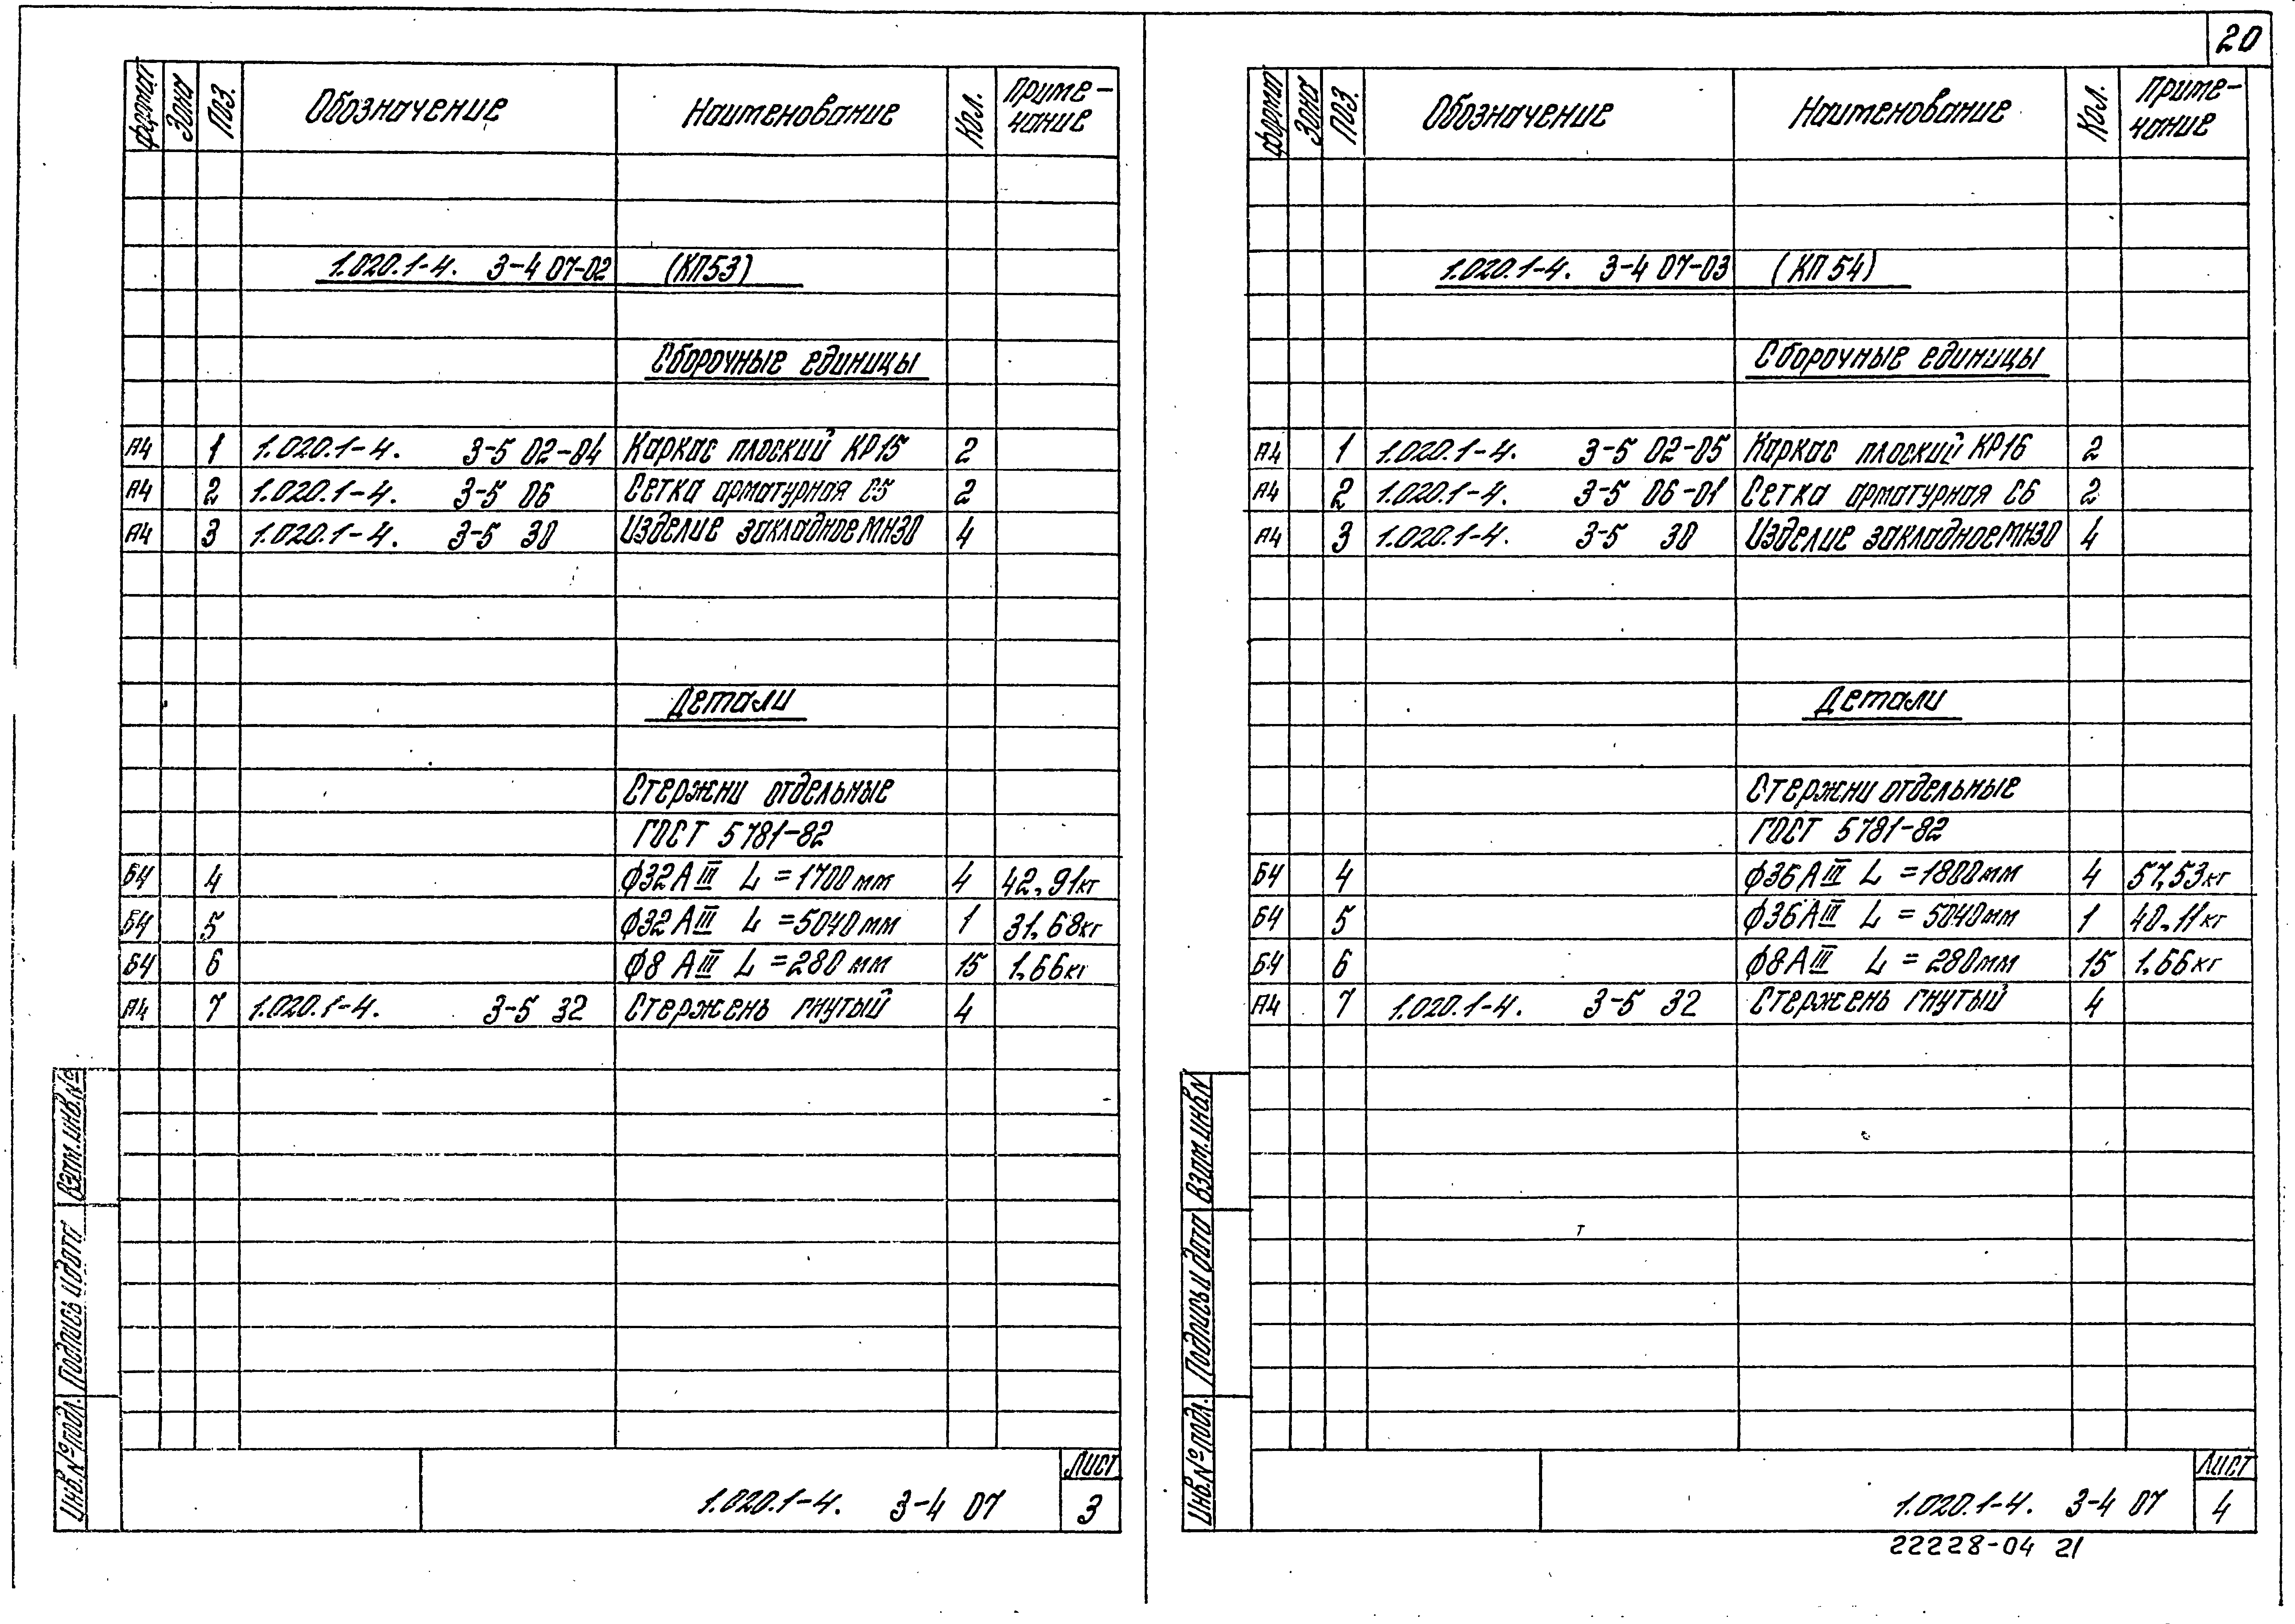 20
формат Зона Поз. Обозначение Наименование Кол. Приме-
чание
1.020.1-4. 3-4 07-02 (КП53)
Сборочные единицы
А4 1 1.020.1-4. 3-5 02-04 Каркас плоский КР15 2
А4 2 1.020.1-4. 3-5 06 Сетка арматурная С5 2
А4 3 1.020.1-4. 3-5 30 Изделие закладное МН30 4
Детали
Стержни отдельные
ГОСТ 5781-82
БЧ 4 ф32АIII L=1700мм 4 42,91кг
БЧ 5 ф32АIII L=5040мм 1 31,68кг
БЧ 6 ф8АIII L=280мм 15 1,66кг
А4 7 1.020.1-4. 3-5 32 Стержень гнутый 4
Взам.инв.№
Подпись и дата
Инв.№подл.
1.020.1-4. 3-4 07
Лист
3
формат Зона Поз. Обозначение Наименование Кол. Приме-
чание
1.020.1-4. 3-4 07-03 (КП54)
Сборочные единицы
А4 1 1.020.1-4. 3-5 02-05 Каркас плоский КР16 2
А4 2 1.020.1-4. 3-5 06-01 Сетка арматурная С6 2
А4 3 1.020.1-4. 3-5 30 Изделие закладное МН30 4
Детали
Стержни отдельные
ГОСТ 5781-82
БЧ 4 ф36АIII L=1800мм 4 57,53кг
БЧ 5 ф36АIII L=5040мм 1 40,11кг
БЧ 6 ф8АIII L=280мм 15 1,66кг
А4 7 1.020.1-4. 3-5 32 Стержень гнутый 4
Взам.инв.N
Подпись и дата
Инв.№подл.
1.020.1-4. 3-4 07
Лист
4
22228-04 21